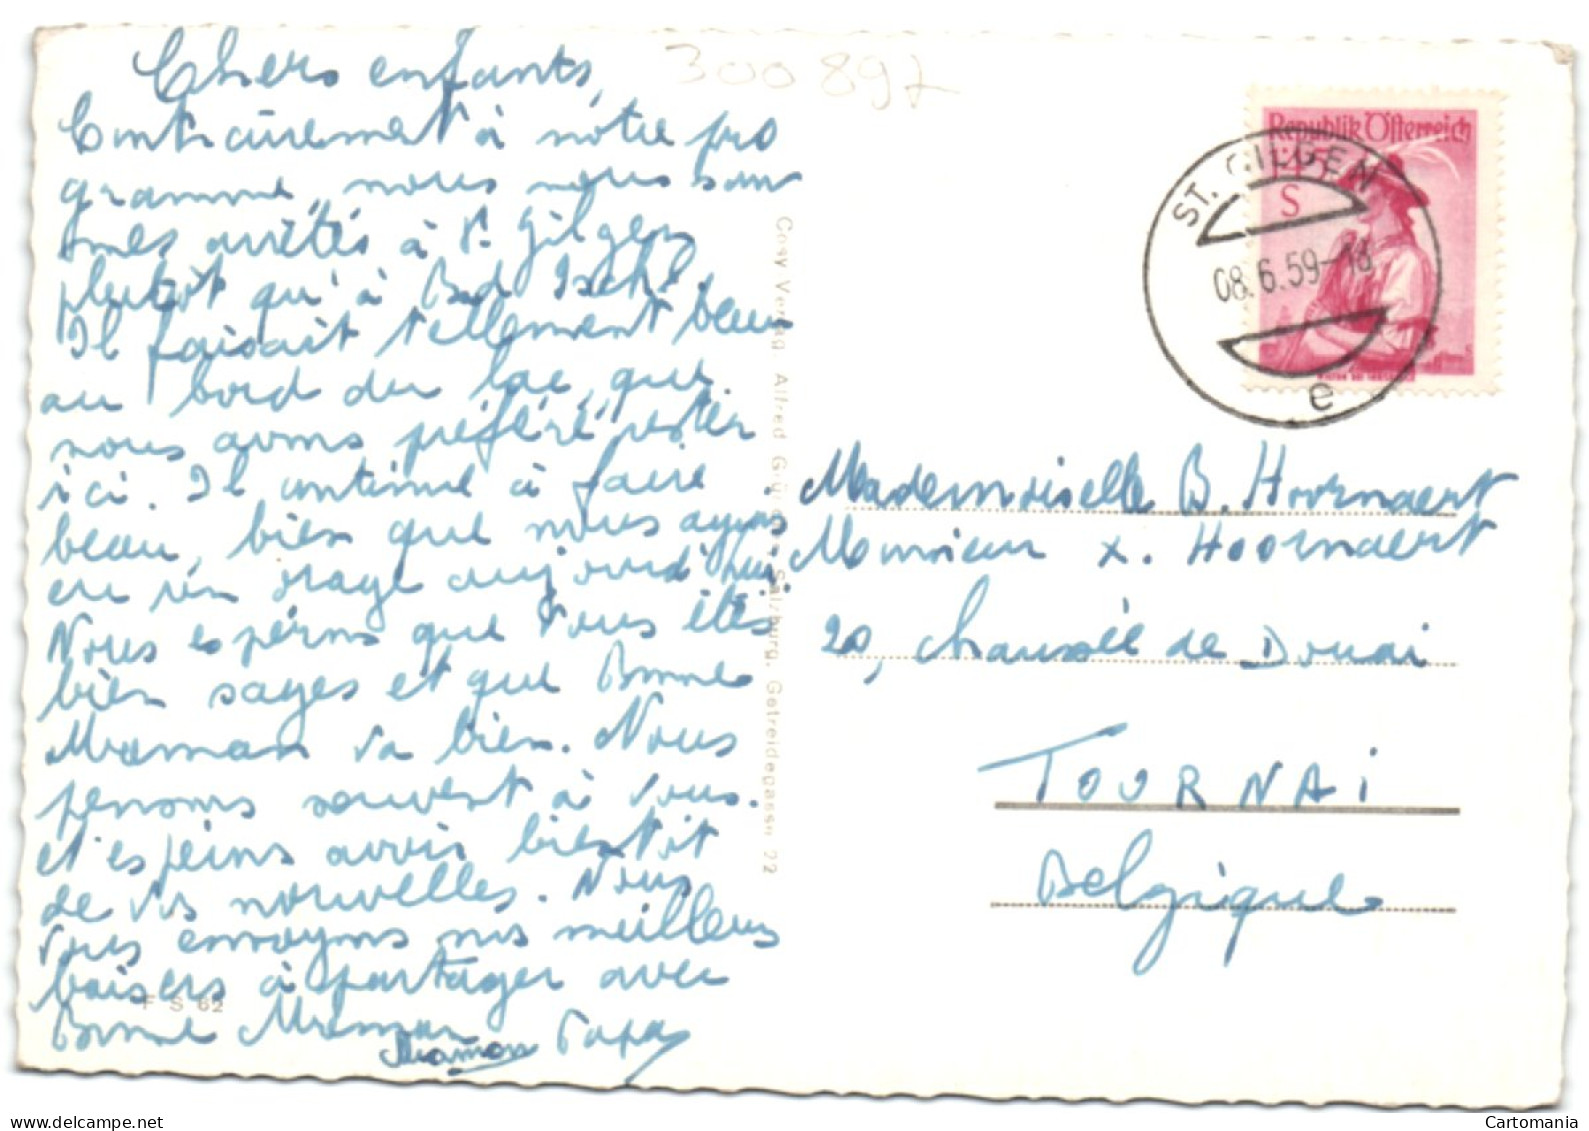 300 897
Chers enfants,
Contrairement à notre pro
gramme, nous nous som
mes arrêtés à St. Gilgen
plutôt qu'à Bad Ischl.
Il faisait tellement beau
au bord du lac, que
nous avons préféré rester
ici. Il continue à faire
beau, bien que nous ayons
eu un orage aujourd'hui.
Nous espérons que vous êtes
bien sages et que Bonne
Maman va bien. Nous
pensons souvent à vous.
et espérons avoir bientôt
de vos nouvelles. Nous
vous envoyons nos meilleurs
baisers à partager avec
Bonne Maman
Maman Papa
F S 62
Cosy Verlag, Alfred Salzburg, Getreidegasse 22
Republik Österreich
1.45
S
ST. GILGEN
08.6.59-18
e
Mademoiselle B. Hoornaert
Monsieur X. Hoornaert
20, chaussée de Douai
TOURNAI
Belgique
delcampe.net
Cartomania